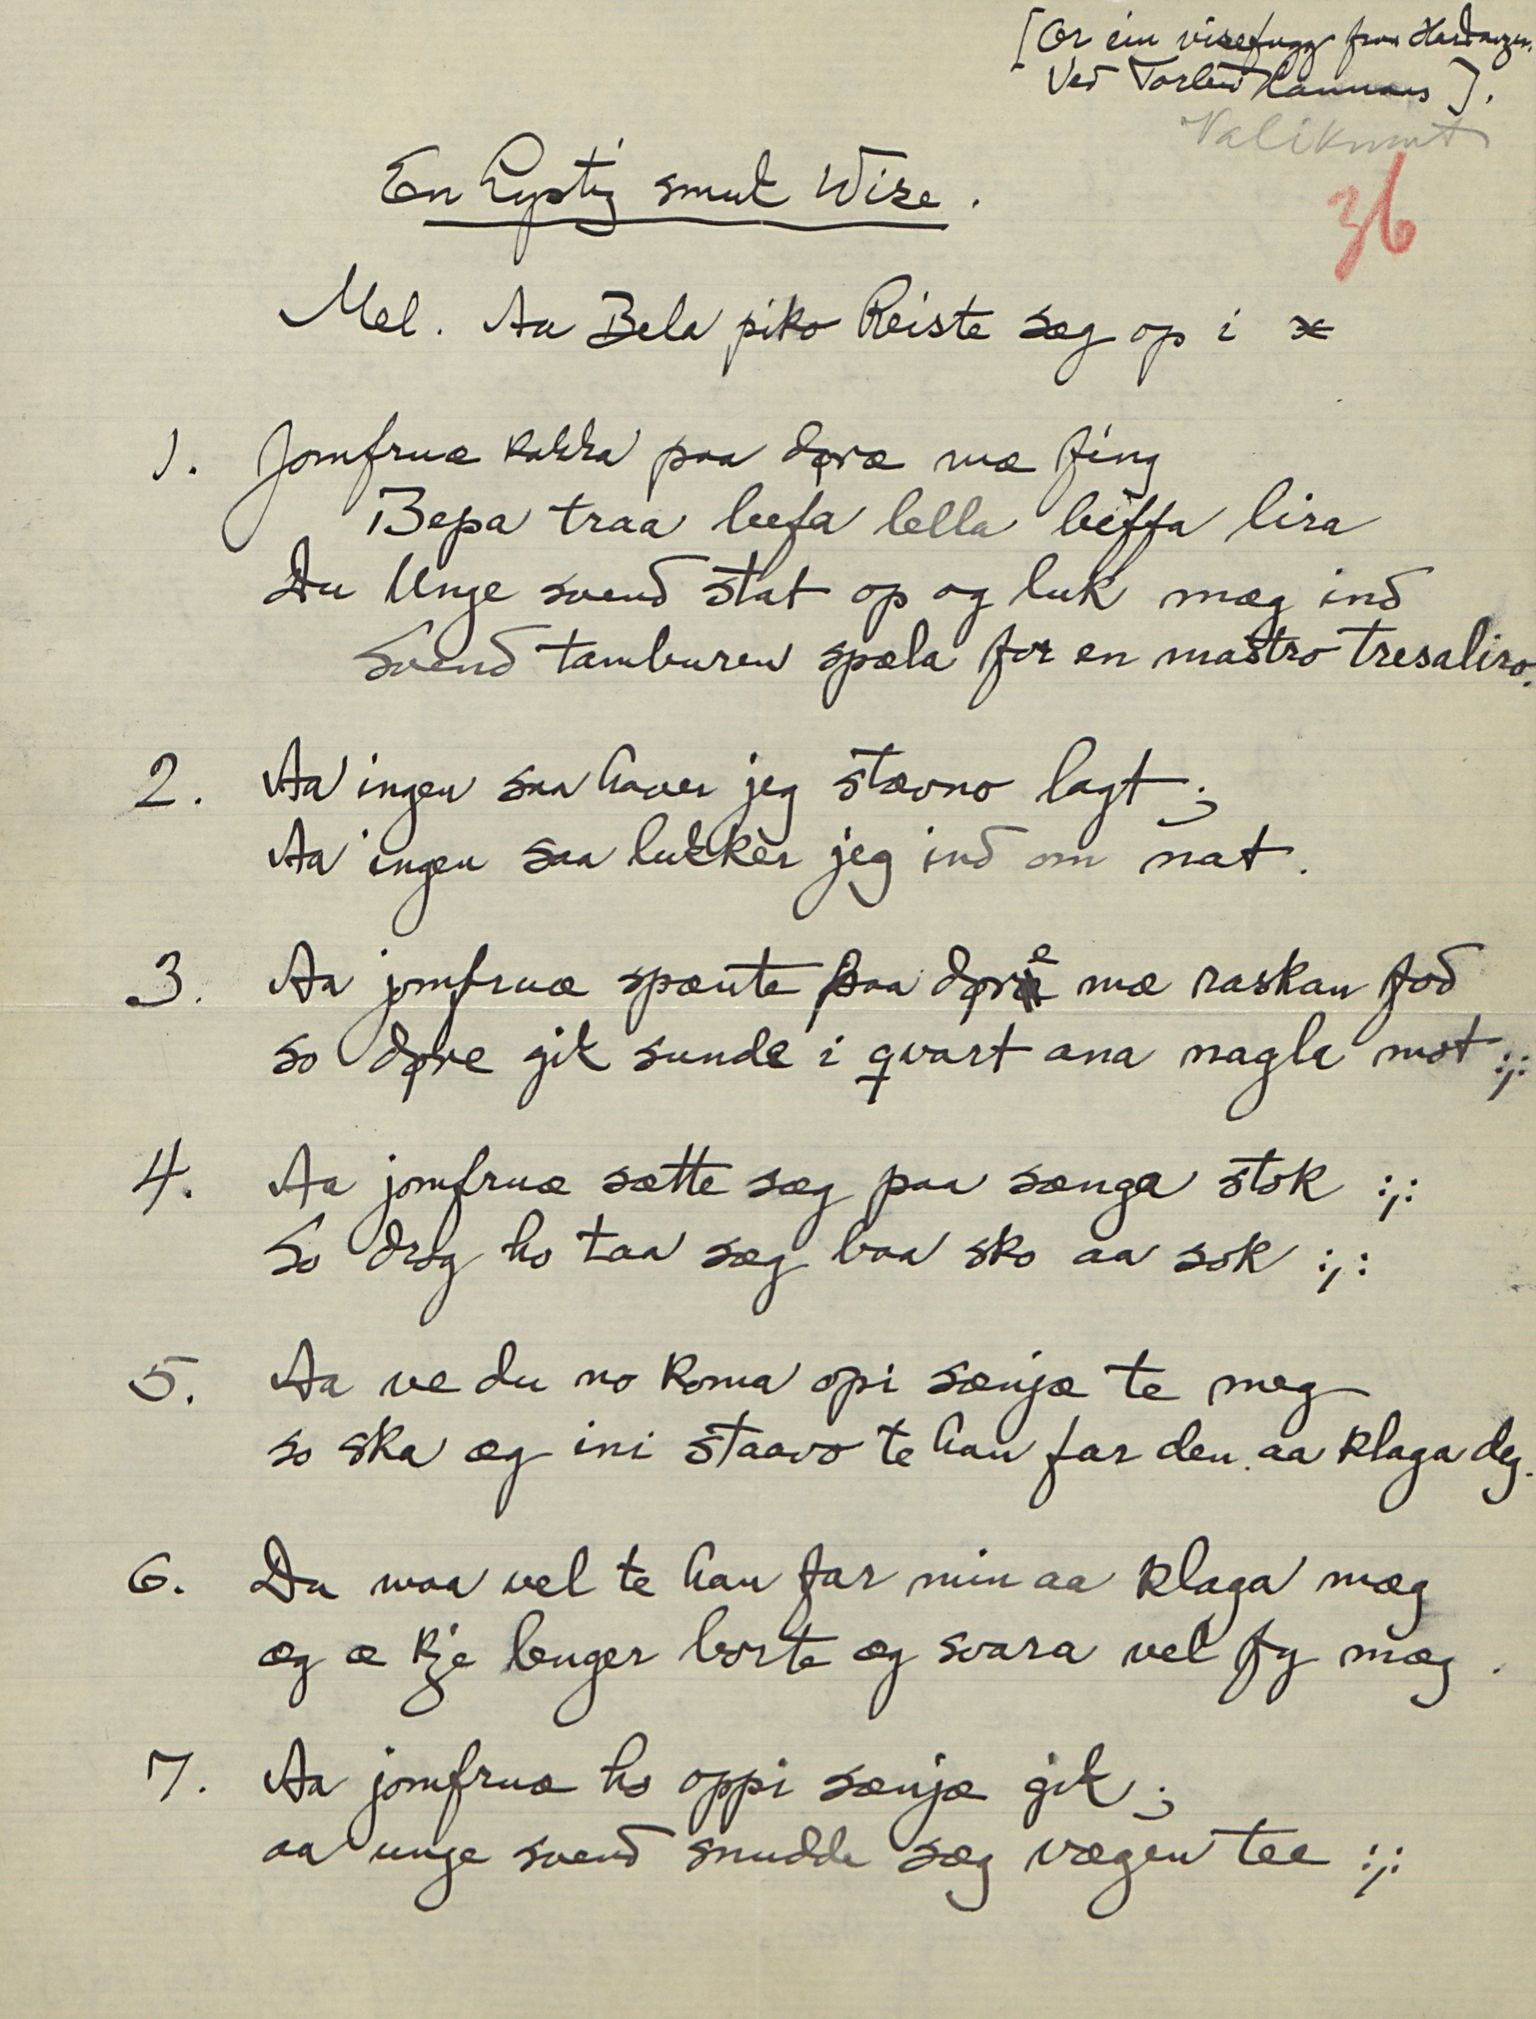 [Or ein visefugg fraa Hardanger.
Ved Torleiv Hannaas].
Valiknut
36
En Lystig smuk Wise.
Mel. Aa Bela piko Reiste sæg op i x
1. Jomfruæ kakka paa døræ mæ fing
Bepa traa leefa lella beffa lira
Du Unge svend stat op og luk mæg ind
Svend tamburen spæla for en mastro tresaliro.
2. Aa ingen saa haver jeg stævno lagt ;
Aa ingen saa lukker jeg ind om nat.
3. Aa jomfruæ spænte paa døre mæ raskan fod
so døre gik sunde i qvart ana nagla mot :,:
4. Aa jomfruæ sætte sæg paa sænga stok :,:
So drog ho taa sæg baa sko aa sok :,:
5. Aa ve du no koma opi sænjæ te mæg
so ska æg ini staavo te han far den aa klaga deg.
6. Du maa vel te han far min aa klaga mæg
æg æ kje lenger borte æg svara vel fy mæg.
7. Aa jomfruæ ho oppi sænjæ gik ;
aa unge svend snudde sæg vægen tee :,: